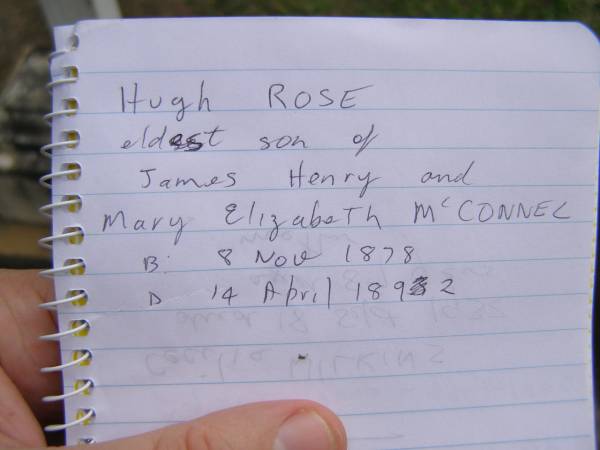 Hugh ROSE
eldest son of
James Henry and
Mary Elizabeth McCONNEL
B: 8 Nov 1878
D 14 April 1892
Cecilia WILKINS